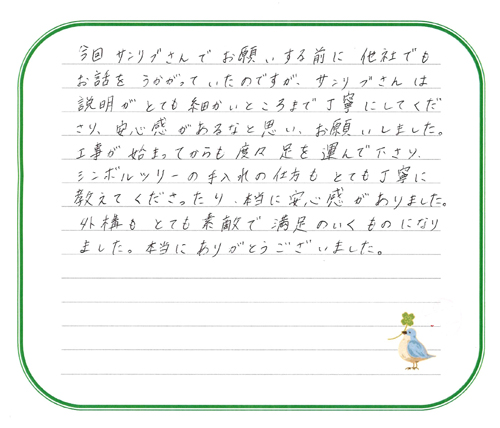 今回サンリブさんでお願いする前に他社でも
お話をうかがっていたのですが、サンリブさんは
説明がとても細かいところまで丁寧にしてくだ
さり、安心感があるなと思い、お願いしました。
工事が始まってからも度々足を運んで下さり、
シンボルツリーの手入れの仕方もとても丁寧に
教えてくださったり、本当に安心感がありました。
外構もとても素敵で満足のいくものになり
ました。本当にありがとうございました。